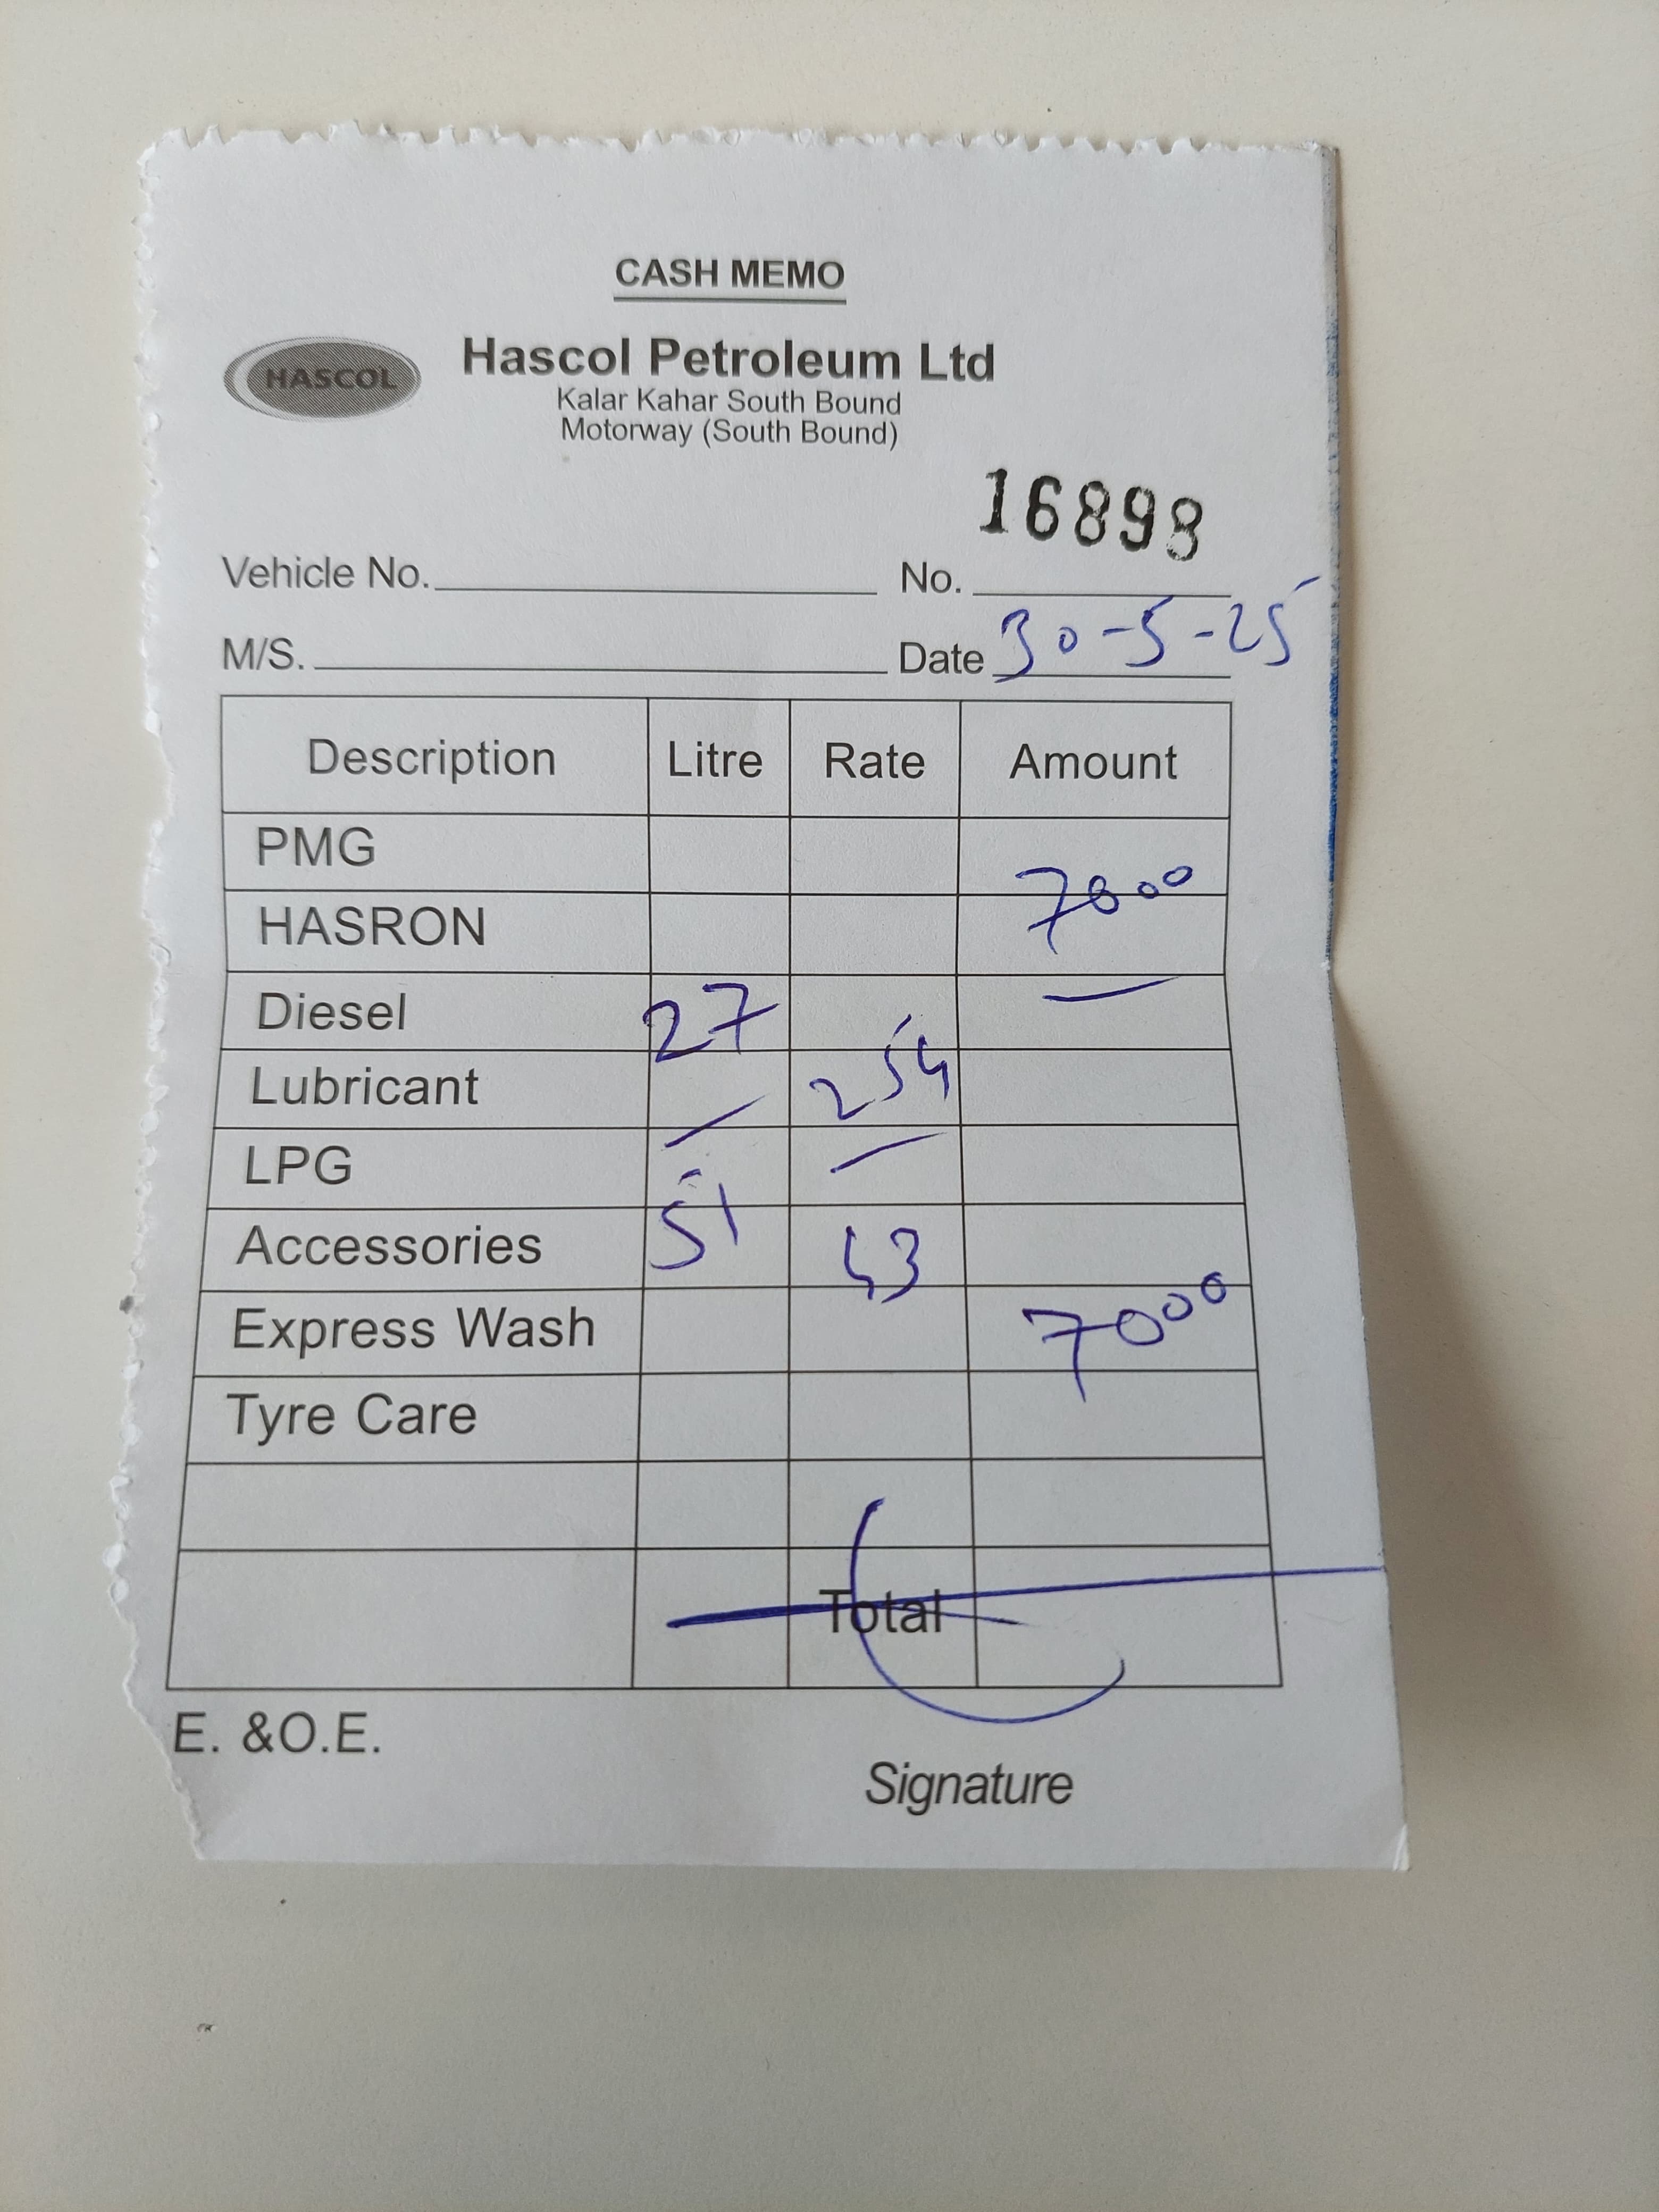 CASH MEMO
HASCOL
Hascol Petroleum Ltd
Kalar Kahar South Bound
Motorway (South Bound)
16898
Vehicle No. No.
M/S. Date 30-5-25
Description Litre Rate Amount
PMG
7000
HASRON
Diesel 27
Lubricant 254
LPG
Accessories 51 43
Express Wash 7000
Tyre Care
Total
E. &O.E.
Signature